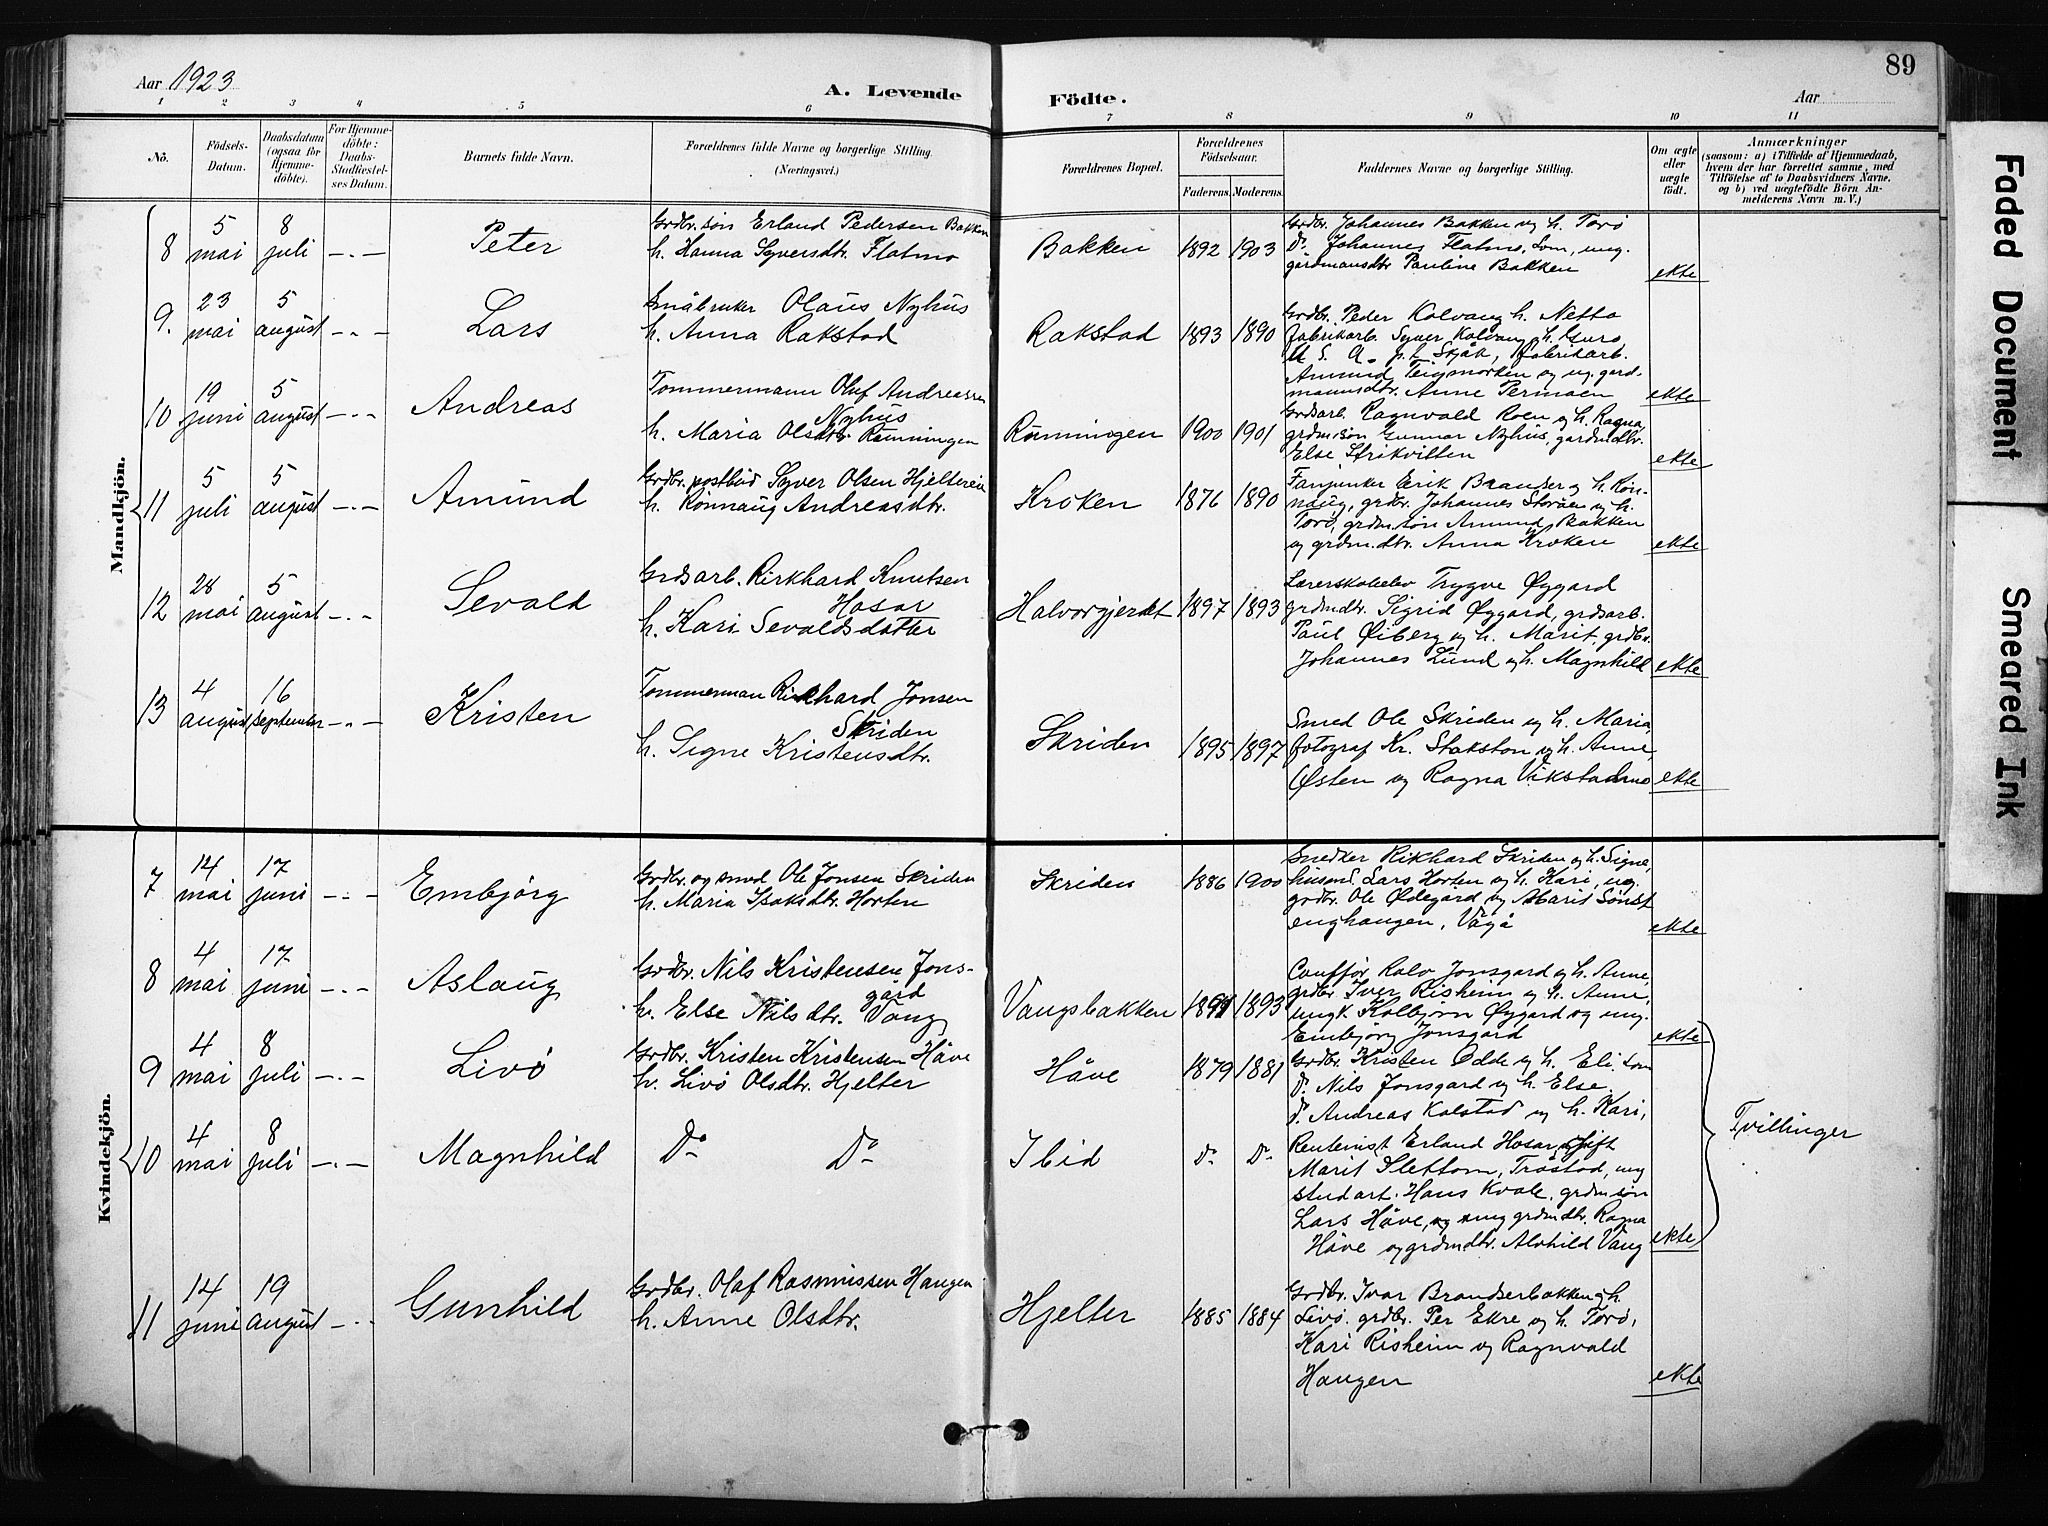 Aar 1923
A. Levende
Födte.
Aar
89
1 2 3 4 5 6 7 8 9 10 11
No.
Födsels-Datum.
Daabsdatum (ogsaa for Hjemme-döbte).
For Hjemme-döbte: Daabs-Stadfæstel-ses Datum.
Barnets fulde Navn.
Forældrenes fulde Navne og borgerlige Stilling. (Næringsvei.)
Forældrenes Bopæl.
Forældrenes Födselsaar.
Faderens. Moderens.
Faddernes Navne og borgerlige Stilling.
Om ægte eller uægte födt.
Anmærkninger
(saasom: a) i Tilfælde af Hjemmedaab, hvem der har forrettet samme, med Tilföielse af to Daabsvidners Navne, og b) ved uægtefödte Börn An-melderens Navn m. V.)
Mandkjön.
8 5 mai 8 juli -.- Peter
Grdbr. sön Erland Pedersen Bakken
h. Hanna Syversdtr. Flatmo
Bakken 1892 1903
Grdbr. Johannes Bakken og h. Torö
Do. Johannes Flatmo, Lom, ung.
gårdmansdtr Pauline Bakken
ekte
9. 23 mai 5 august -.- Lars
Småbruker Olaus Nyhus
h. Anna Rakstad
Rakstad 1893 1890
Grdbr. Peder Kolvang h. Netta
fabrikarb. Syver Kolvang og h. Guro,
U. S. A. p. t. Skjåk, fabrikarb.
Amund Teigmorken og ug. gard-
mannsdtr. Anne Permoen
ekte
10 19 juni 5 august -.- Andreas
Tømmermann Oluf Andreassen
Nyhus
h. Maria Olsdtr. Rumningen
Rumningen 1900 1901
Grdsarb. Ragnvald Roen og h. Ragna,
grdm.sön Gunnar Nyhus, gardmdtr.
Else Strikvitten
ekte
11 5 juli 5 august -.- Amund
Grdbr. postbud Syver Olsen Hjelterein
h. Rønnaug Andreasdtr.
Kroken 1876 1890
Fanjunker Erik Brander og h. Røn-
naug, grdbr. Johannes Storøen og h.
Torö, grdm.sön Amund Bakken
og grdm.dtr. Anna Kroken
ekte
12 28 mai 5 august -.- Sevald
Grdsarb. Rikkhard Knutsen
Hosar
h. Kari Sevaldsdatter
Halvorgjerdet 1897 1893
Lærerskoleelev Trygve Øygard
grdmdtr. Sigrid Øygard, grdsarb.
Paul Øiberg og h. Marit, grdbr.
Johannes Lund og h. Magnhild
ekte
13 4 august 16 september -.- Kristen
Tømmerman Rikhard Jonsen
Skriden
h. Signe Kristensdtr.
Skriden 1895 1897
Smed Ole Skriden og h. Maria,
fotograf Kr. Stakston og h. Anne,
Østen og Ragna Vikstadmo
ekte
Kvindekjön.
7 14 mai 17 juni -.- Embjörg
Grdbr. og smed Ole Jonsen Skriden
h. Maria Isaksdtr. Horten
Skriden 1886 1900
Snedker Rikhard Skriden og h. Signe,
husmd. Lars Horten og h. Kari, ug.
grdbr. Ole Ødegård og Marit Sønst
enghaugen, Vågå
ekte
8 4 mai 17 juni -.- Aslaug
Grdbr. Nils Kristensen Jons-
gård
h. Else Nilsdtr. Vang
Vangsbakken 1893
Chauffør Rolv Jonsgard og h. Anne,
grdbr Iver Risheim og h. Anne,
ungk. Kolbjørn Øygard og ung.
Embjörg Jonsgard
ekte
9 4 mai 8 juli -.- Livö
Grdbr. Kristen Kristensen Håve
h. Livö Olsdtr. Hjelter
Håve 1879 1881
Grdbr. Kristen Odde og h. Eli, Lom
Do. Nils Jonsgard og h. Else
Do. Andreas Kolstad og h. Kari,
10 4 mai 8 juli -.- Magnhild
Do Do
Ibid Do Do
Rentenist Erland Hosar, gift
Marit Slettom, Tråstad, ug
stud art. Hans Kvale, grdm sön
Lars Håve, og ung grdmdtr. Ragna
Håve og grdmdtr. Alvhild Vang
ekte
Tvillinger
11 14 juni 19 august -.- Gunhild
Grdbr. Olaf Rasmussen Haugen
h. Anne Olsdtr.
Hjelter 1885 1884
Grdbr. Ivar Brandserbakken og h.
Livö. grdbr. Per Ekre og h. Torö,
Kari Risheim og Ragnvald
Haugen
ekte
Faded Document
Smeared Ink